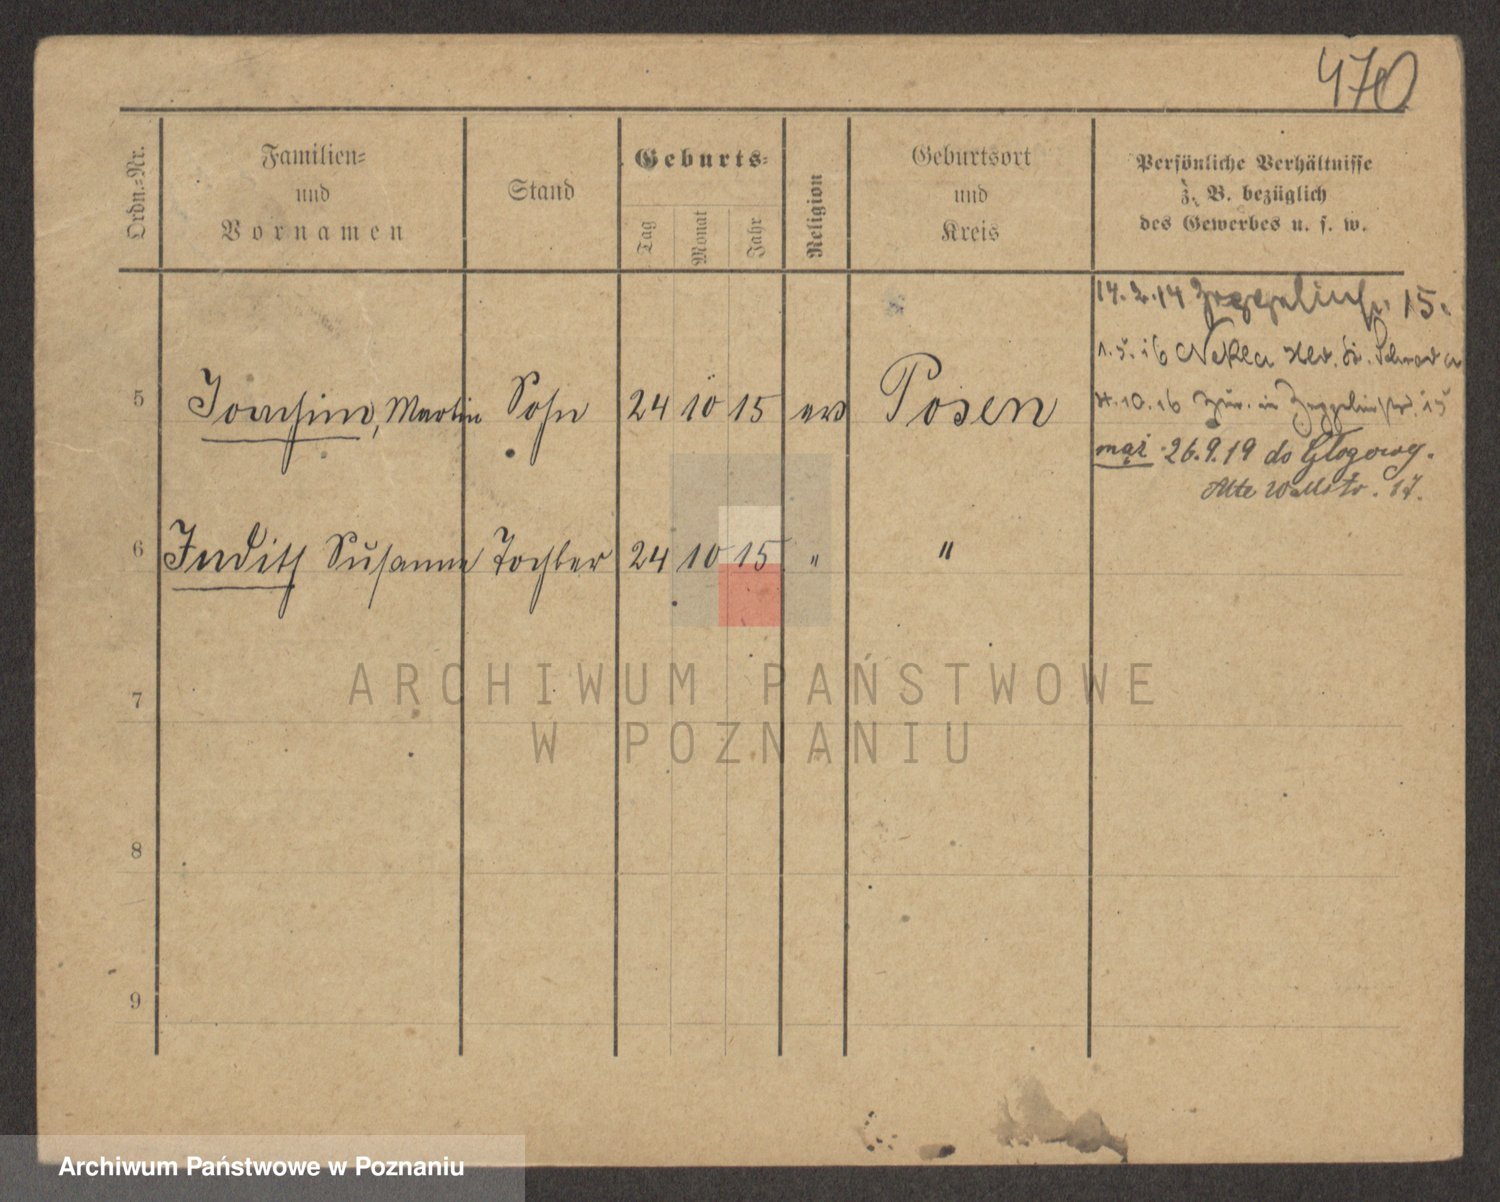 470
Ordn.=Nr.
Familien=
und
Vornamen
Stand
Geburts=
Tag
Monat
Jahr
Religion
Geburtsort
und
Kreis
Persönliche Verhältnisse
z. B. bezüglich
des Gewerbes u. s. w.
14.2.14 Zeppelinstr. 15.
1.5.16 Nekla
5 Joachim, Martin Sohn 24 10 15 ev Posen
10.16 Zur. in Zeppelinstr. 15
mąż 26.9.19 do Głogowy.
Alte Wallstr. 17.
6 Judith Susanne Tochter 24 10 15 " "
7
8
9
ARCHIWUM PAŃSTWOWE
W POZNANIU
Archiwum Państwowe w Poznaniu